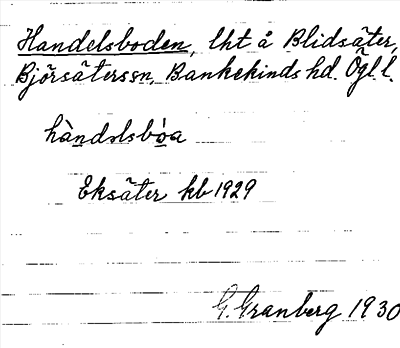 Handelsboden, lht å Blidsäter,
Björsäterssn, Bankekinds hd. Ögl.l.
hàndəlsbòa
Eksäter kb 1929
G. Granberg 1930